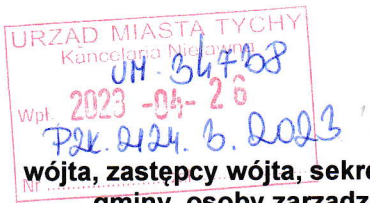 URZĄD MIASTA TYCHY
Kancelaria Niejawna
UM. 34738
Wpł. 2023 -04- 26
PZK. 2124. 3. 2023
wójta, zastępcy wójta, sekre
Nr
gminy, osoby zarządz